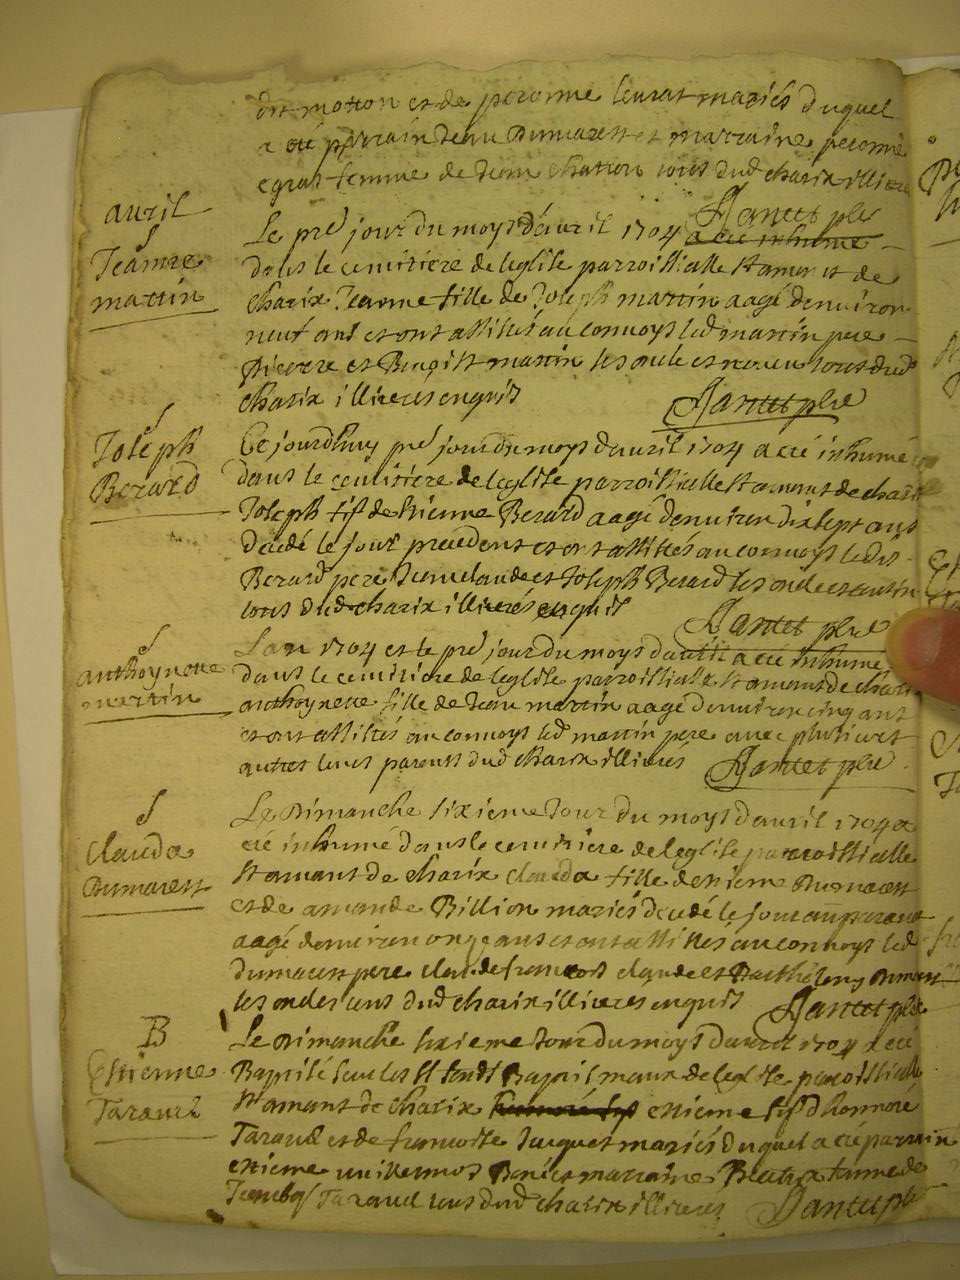 dit motton et de peronne leurat mariés duquel
a été parrain Jean Dumarest et marraine peronne
egras femme de Jean chatton tous dud charix illiterés
Jantet pbr
avril
S
Jeanne
martin
Le pre jour du moys d'avril 1704 a eté inhumé
dans le cemitiere de leglise parroissialle st amant de
charix Jeanne fille de Joseph martin aagé denviron
neuf ans et ont assistés au convoys led martin pere
pierre et Benoist martin les oncle et tous dud
charix illiteres enquis
Jantet pbre
S
Joseph
Berard
Ce jourdhuy pre jour du moys davril 1704 a eté inhumé
dans le cemitiere de leglise parroissialle st amant de charix
Joseph fils de Etienne Berard aagé denviron dixsept ans
decédé le jour precedent et ont assistés au convoys ledit
Berard pere Jean claude et Joseph Berard les oncle et cousin
tous dud charix illiterés enquis
Jantet pbre
S
anthoynette
martin
Lan 1704 et le pre jour du moys davril a eté inhumé
dans le cemitiere de leglise parroissialle st amant de charix
anthoynette fille de Jean martin aagé denviron cinq ans
et ont assistés au convoys led martin pere avec plusieurs
autres leurs parents dud charix illiterés
Jantet pbre
S
clauda
Dumarest
Le Dimanche sixieme Jour du moys davril 1704 a
eté inhumé dans le cemitiere de leglise parroissialle
st amant de charix clauda fille detienne Dumarest
et de amande Billion mariés decedé le jour auparavant
aagé denviron onze ans et ont assistés au convoys led
dumarest pere claude francois claude et Barthelemy Dumarest
les oncles tous dud charix illiteres enquis
Jantet pbre
B
Etienne
Taravel
Le Dimanche sixieme Jour du moys davril 1704 a eté
Baptisé sur les st fonds Baptismaux de leglise parroissialle
st amant de charix etienne fils d honnoré
Taravel et de francoise Jacquet mariés duquel a eté parrain
etienne vuillermoz marraine Beatrix femme de
Taravel tous dud charix illiterés
Jantet pbr